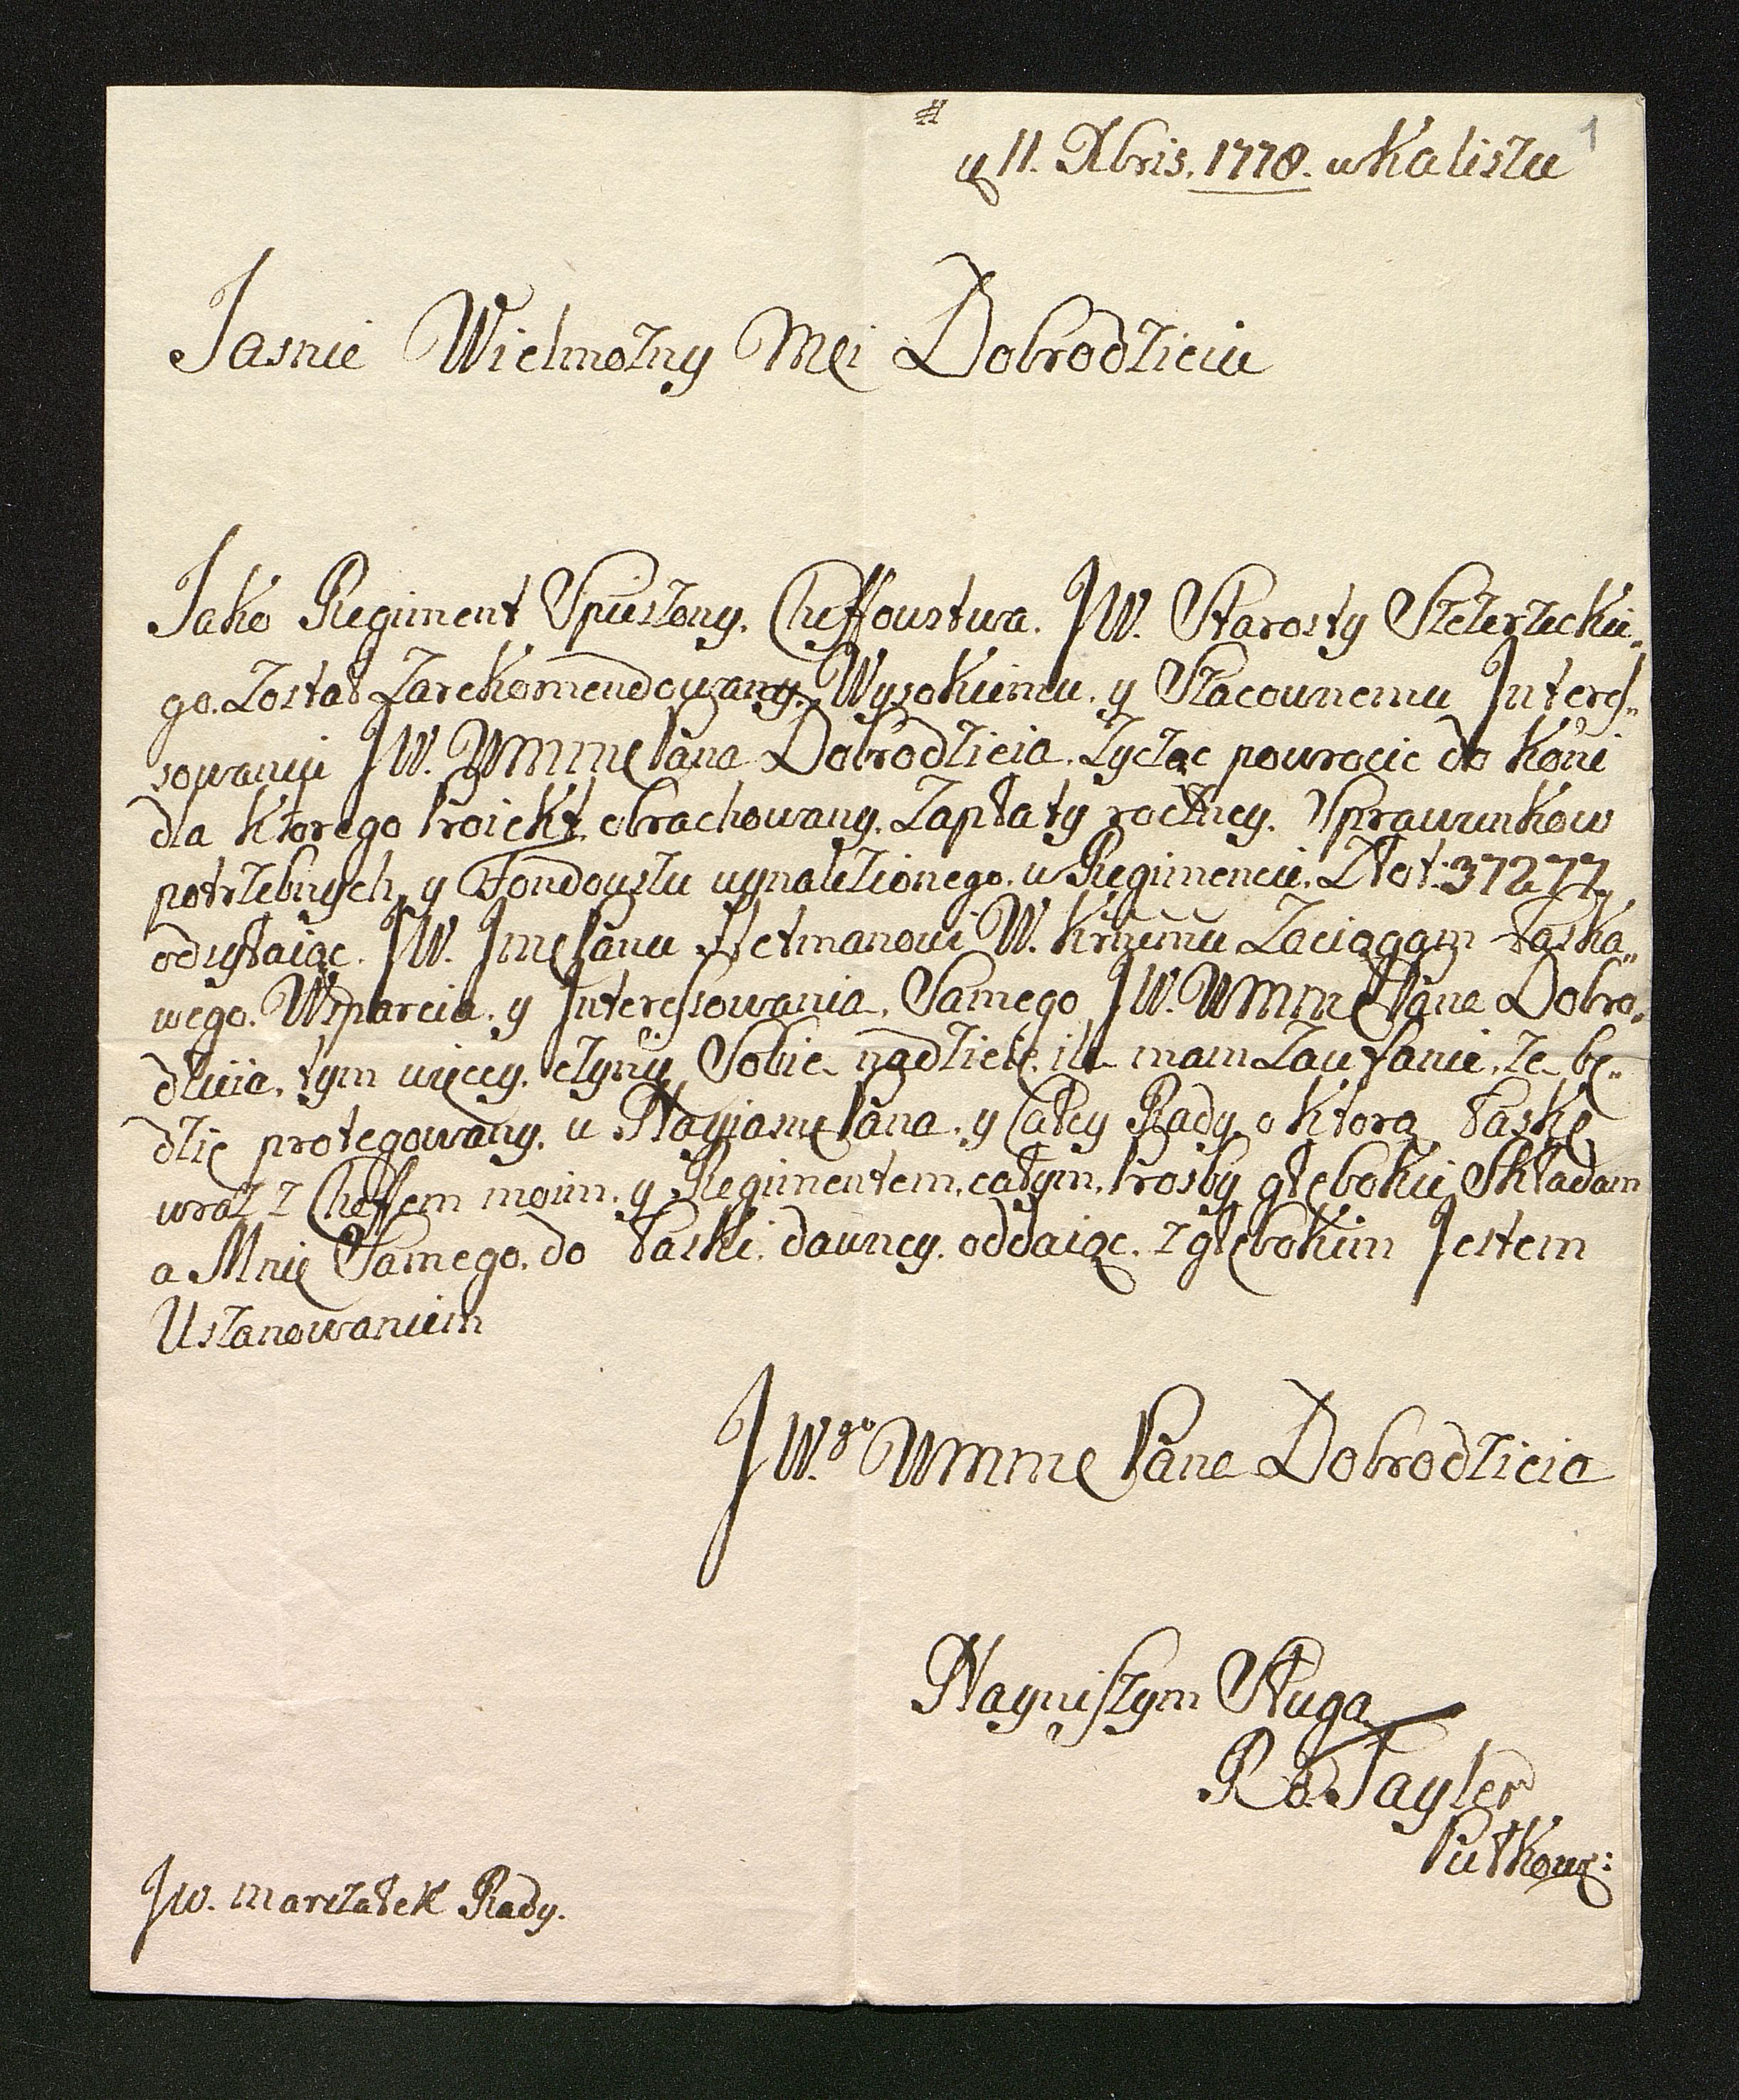 1
d 11. Xbris. 1778. w Kaliszu
Jasnie Wielmożny Mci Dobrodzieiu
Jako Regiment Spieszony. Cheffowstwa. JW. Starosty Szczerzeckie„
go. został zarekomendowany. Wysokiemu. y Szacownemu Interes„
sowaniu JW. WMMMc Pana Dobrodzieia. życząc powrocic do Koni
dla ktorego Proiekt obrachowany. zapłaty roczney. Sprawunkow
potrzebnych, y Fondouszu wynalezionego. w Regimencie. Złot: 37277
odsyłaiąc. JW. Jmc Panu Hetmanowi W. Krnemu zaciągam łaska„
wego. Wsparcia. y Interessowania. Samego JW. WMMMc Pana Dobro„
dzieia. tym więcey. czynię Sobie nadzieię. ile mam zaufanie. że bę„
dzie protegowany. u Nayiasne Pana. y Całey Rady o ktorą łaskę
wraz z Cheffem moim. y Regimentem. całym. Prosby głębokie Składam
a Mnie Samego. do łaski. dawney. oddaiąc. z głębokim Jestem
Uszanowaniem
JW.go WMMMc Pana Dobrodzieia
Nayniszym Sługą
Ro. Tayler
Pułkow:
JW. Marszałek Rady.